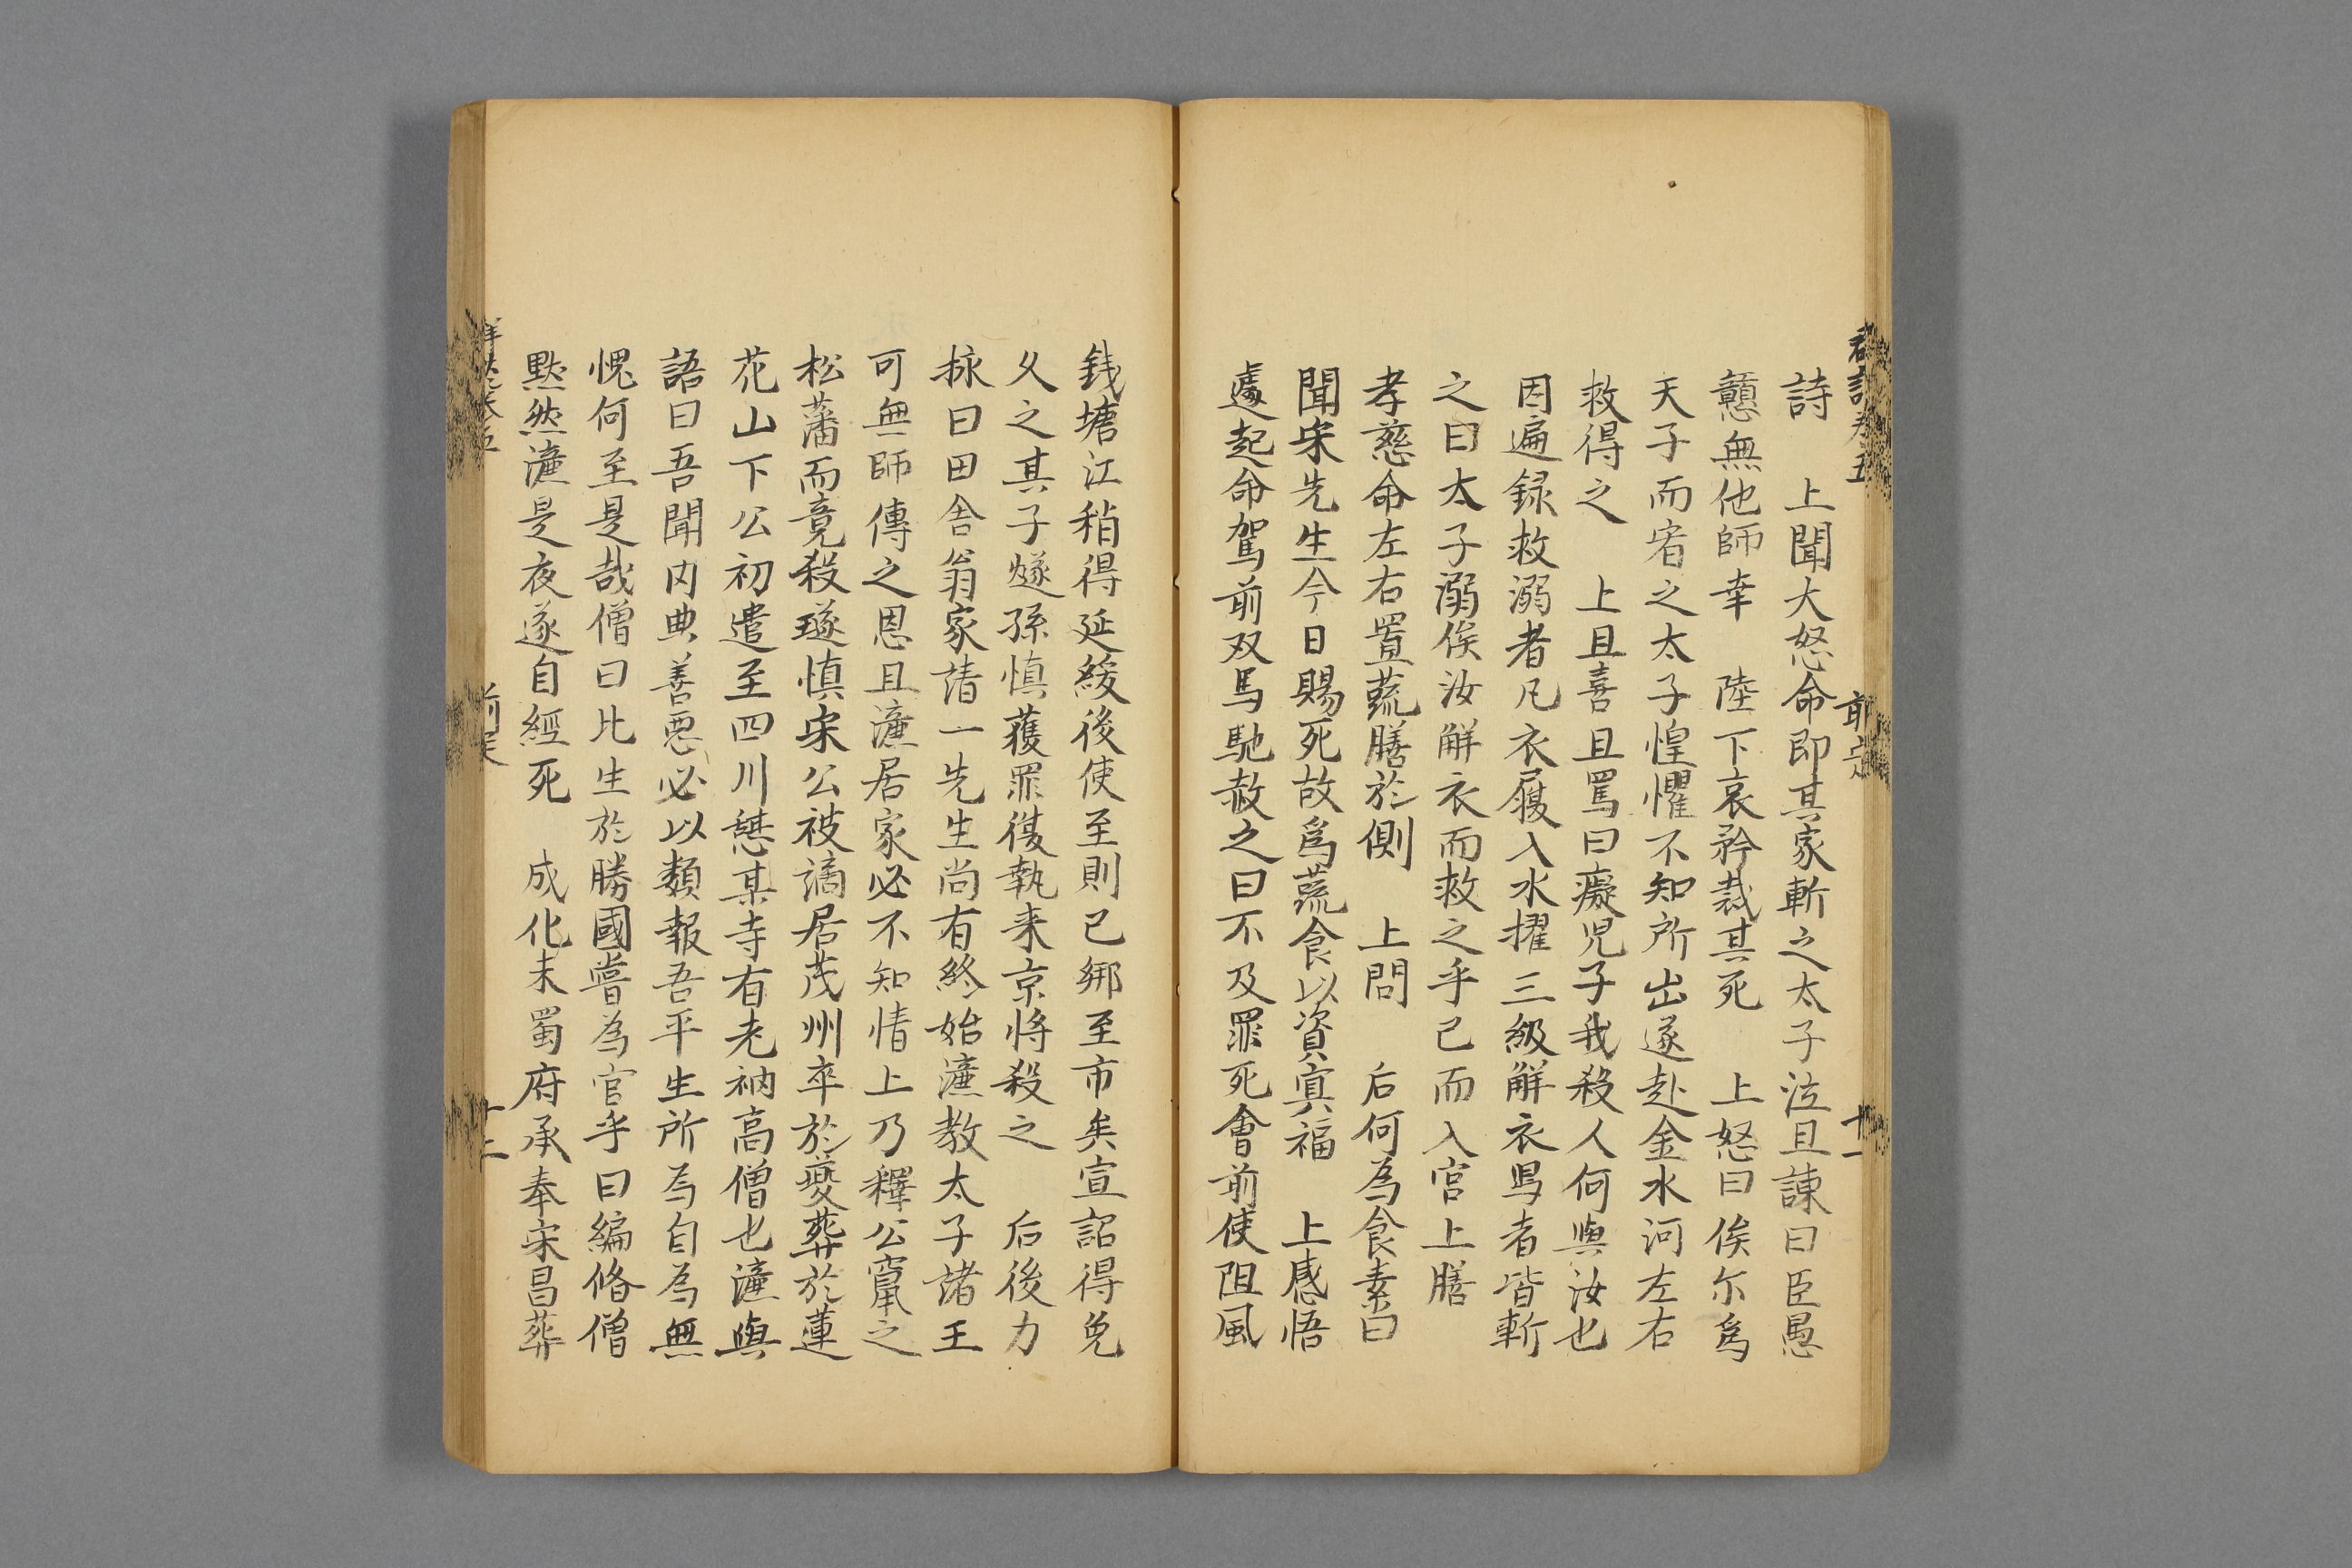 詩　上聞大怒命即其家斬之太子泣且諫曰臣愚
戇無他師幸　陛下哀矜裁其死　上怒曰俟尔爲
天子而宥之太子惶懼不知所出遂赴金水河左右
救得之　上且喜且罵曰癡児子我殺人何與汝也
因遍録救溺者凡衣履入水擢三級解衣舄者皆斬
之曰太子溺俟汝解衣而救之乎已而入宫上膳
孝慈命左右置蔬膳於側　上問　后何為食素曰
聞宋先生今日賜死故爲蔬食以資冥福　上感悟
遽起命駕前双馬馳赦之曰不及罪死會前使阻風
錢塘江稍得延緩後使至則已綁至市矣宣詔得免
久之其子燧孫慎獲罪復執来京将殺之　后復力
捄曰田舍翁家請一先生尚有終始濂教太子諸王
可無師傅之恩且濂居家必不知情上乃釋公竄之
松藩而竟殺璲慎宋公被謫居茂州卒於夔葬於蓮
花山下公初遣至四川憇某寺有老衲高僧也濂與
語曰吾聞内典善悪必以類報吾平生所為自為無
愧何至是哉僧曰比生於勝國嘗為官乎曰編脩僧
黙然濂是夜遂自經死　成化末蜀府承奉宋昌葬
前定
十一